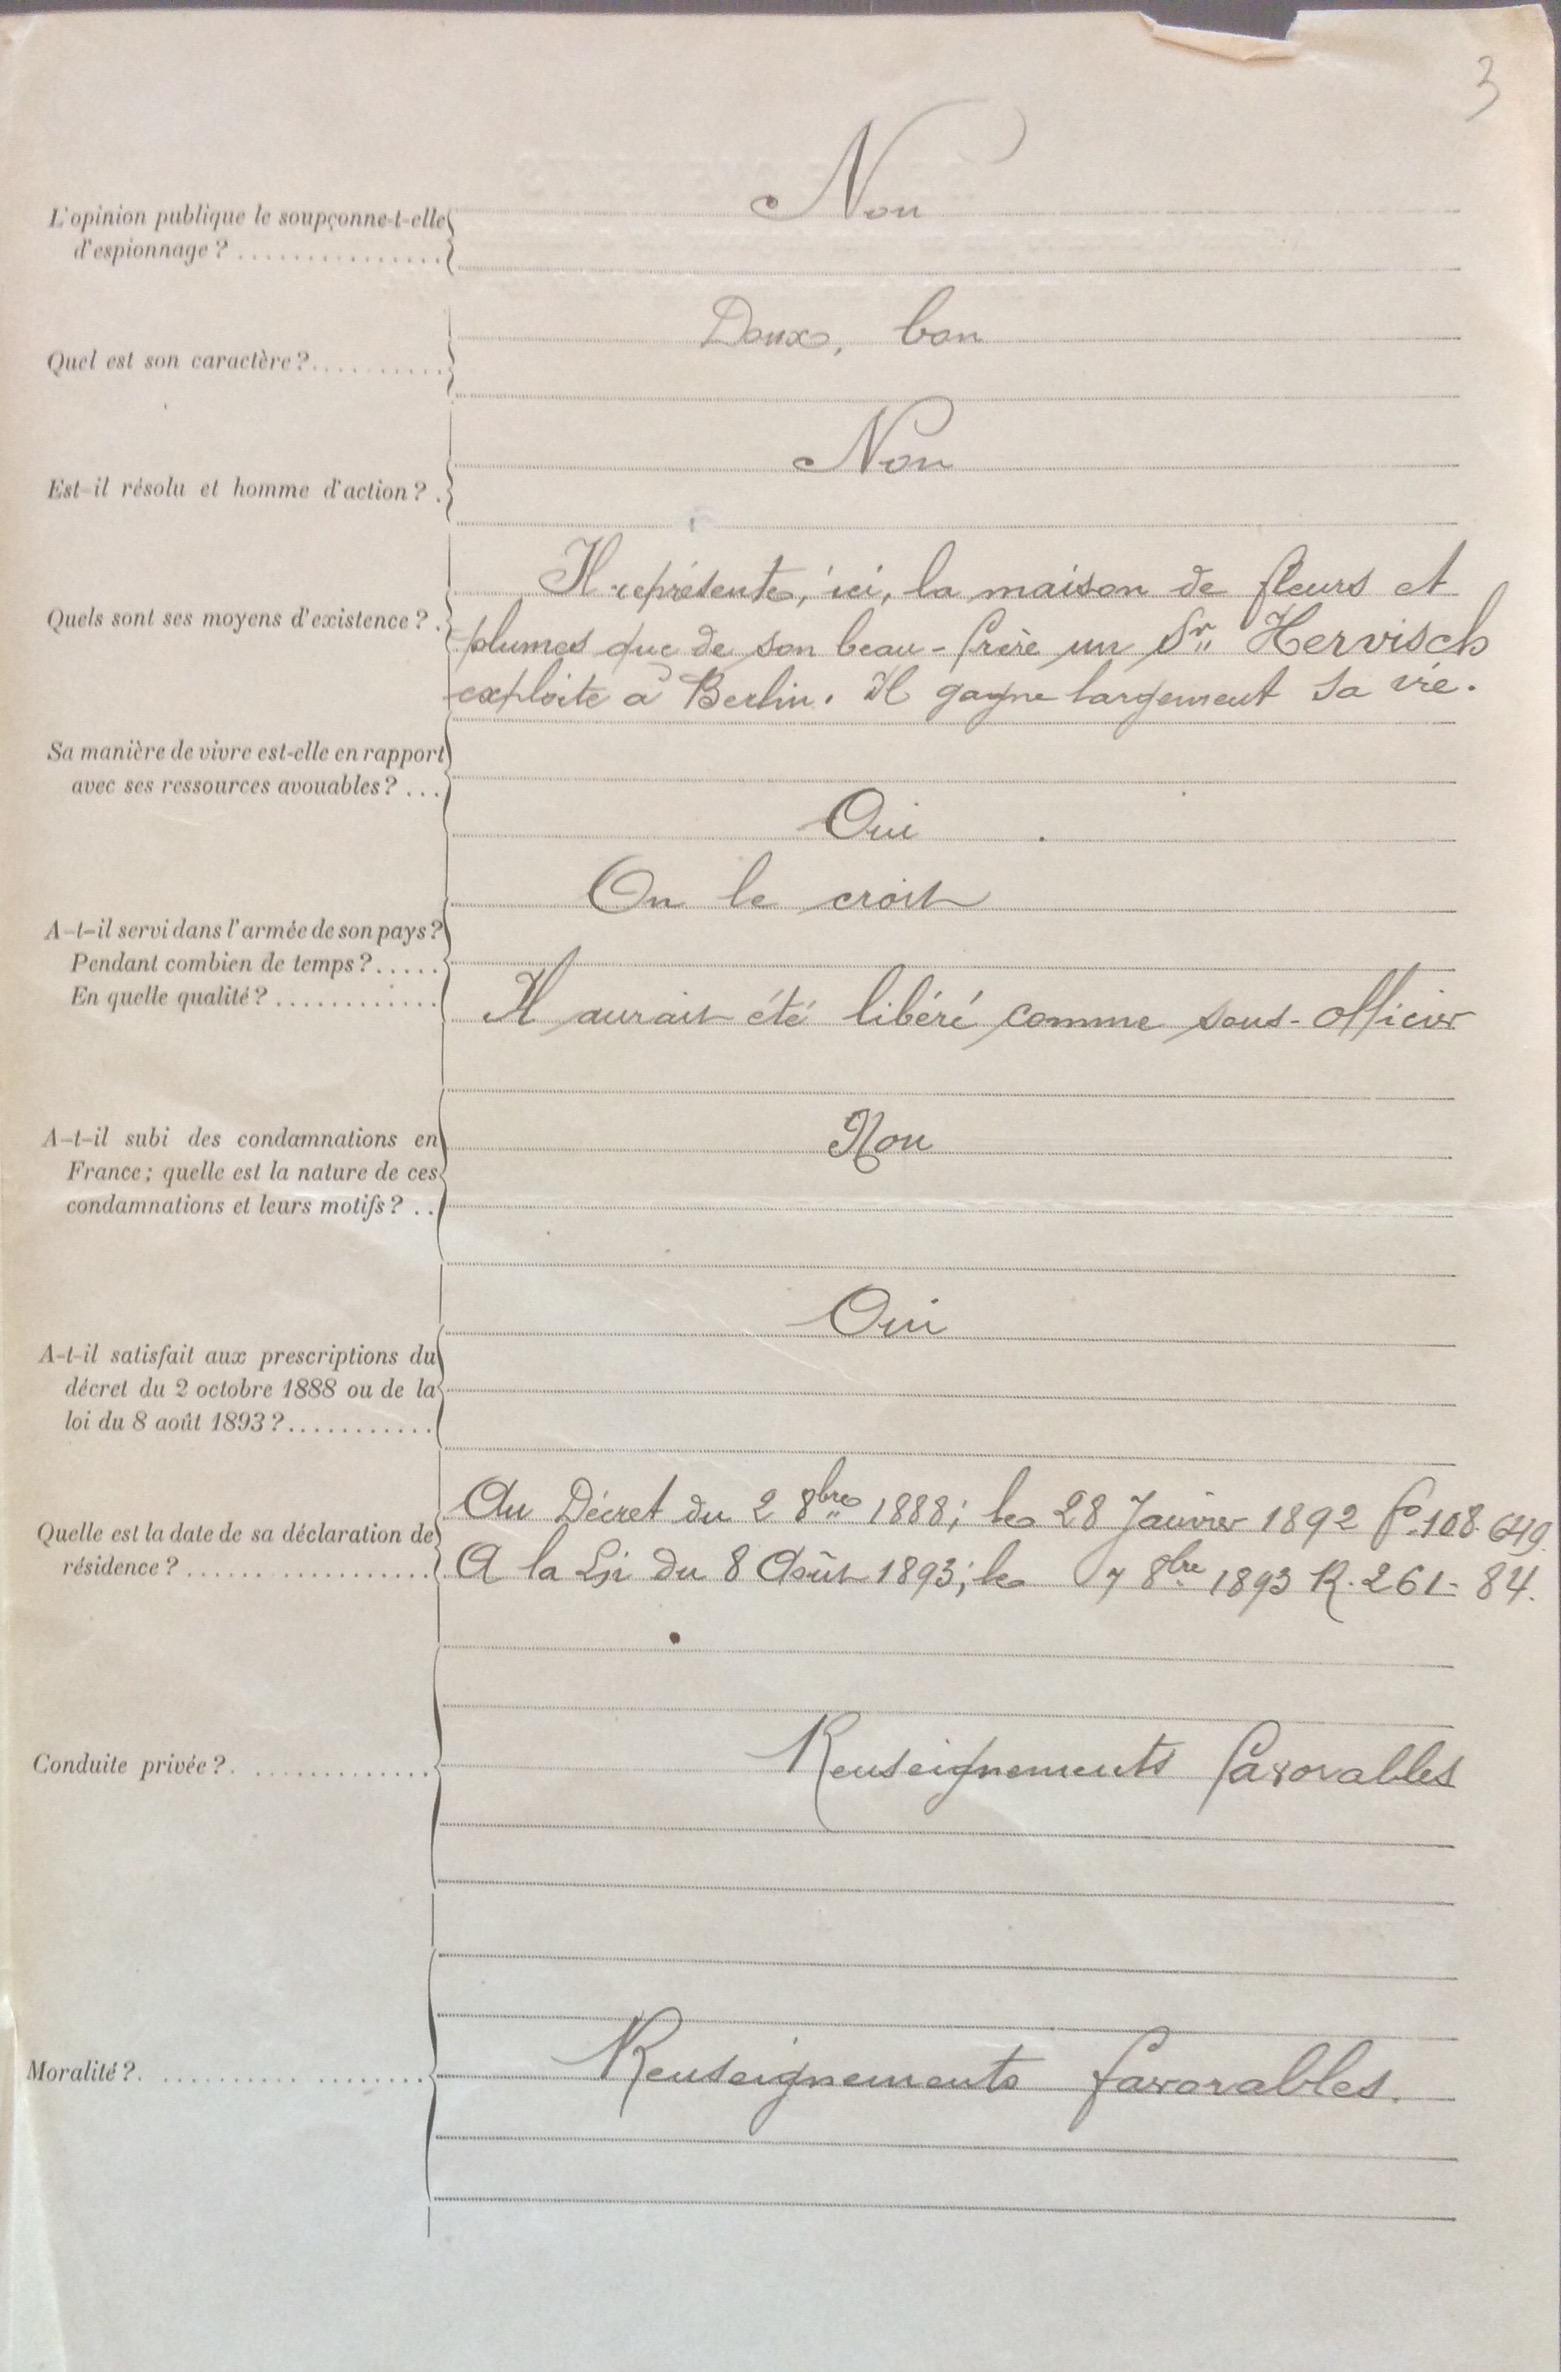 3
Non
L'opinion publique le soupçonne-t-elle
d'espionnage ? ...............
Doux, bon
Quel est son caractère ? ..........
Non
Est-il résolu et homme d'action ? .
Il représente, ici, la maison de fleurs et
Quels sont ses moyens d'existence ? .
plumes que de son beau-frère un Sr. Hervisch
exploite à Berlin. Il gagne largement sa vie.
Sa manière de vivre est-elle en rapport
avec ses ressources avouables ? ...
Oui
On le croit
A-t-il servi dans l'armée de son pays ?
Pendant combien de temps ? .....
En quelle qualité ? ............
Il aurait été libéré comme sous-officier
Non
A-t-il subi des condamnations en
France ; quelle est la nature de ces
condamnations et leurs motifs ? ..
Oui
A-t-il satisfait aux prescriptions du
décret du 2 octobre 1888 ou de la
loi du 8 août 1893 ? ...........
Au Décret du 2 8bre 1888; le 28 Janvier 1892 fo. 108.649.
Quelle est la date de sa déclaration de
résidence ? ...... ...........
A la Loi du 8 Août 1893; le 7 8bre 1893 R. 261-84.
Renseignements favorables
Conduite privée ? . .............
Renseignements favorables.
Moralité ? . .......... ........